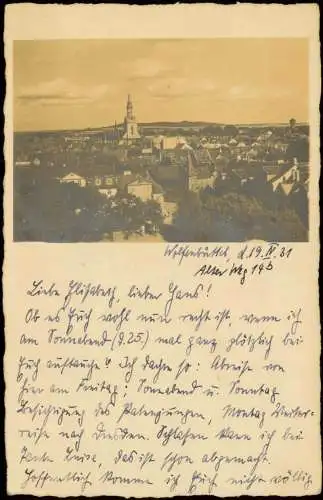 Wolfenbüttel, d. 19. IV. 31
Alter Weg 19b
Liebe Elisabeth, lieber Hans!
Ob es Euch wohl nun recht ist, wenn ich
am Sonnabend (d. 25.) mal ganz plötzlich bei
Euch auftauche? Ich dachte so: Abreise von
hier am Freitag; Sonnabend u. Sonntag
Besichtigung des Patenjungen, Montag Weiter-
reise nach Dresden. Schlafen kann ich bei
Tante Luise, das ist schon abgemacht.
Hoffentlich komme ich Euch nicht völlig